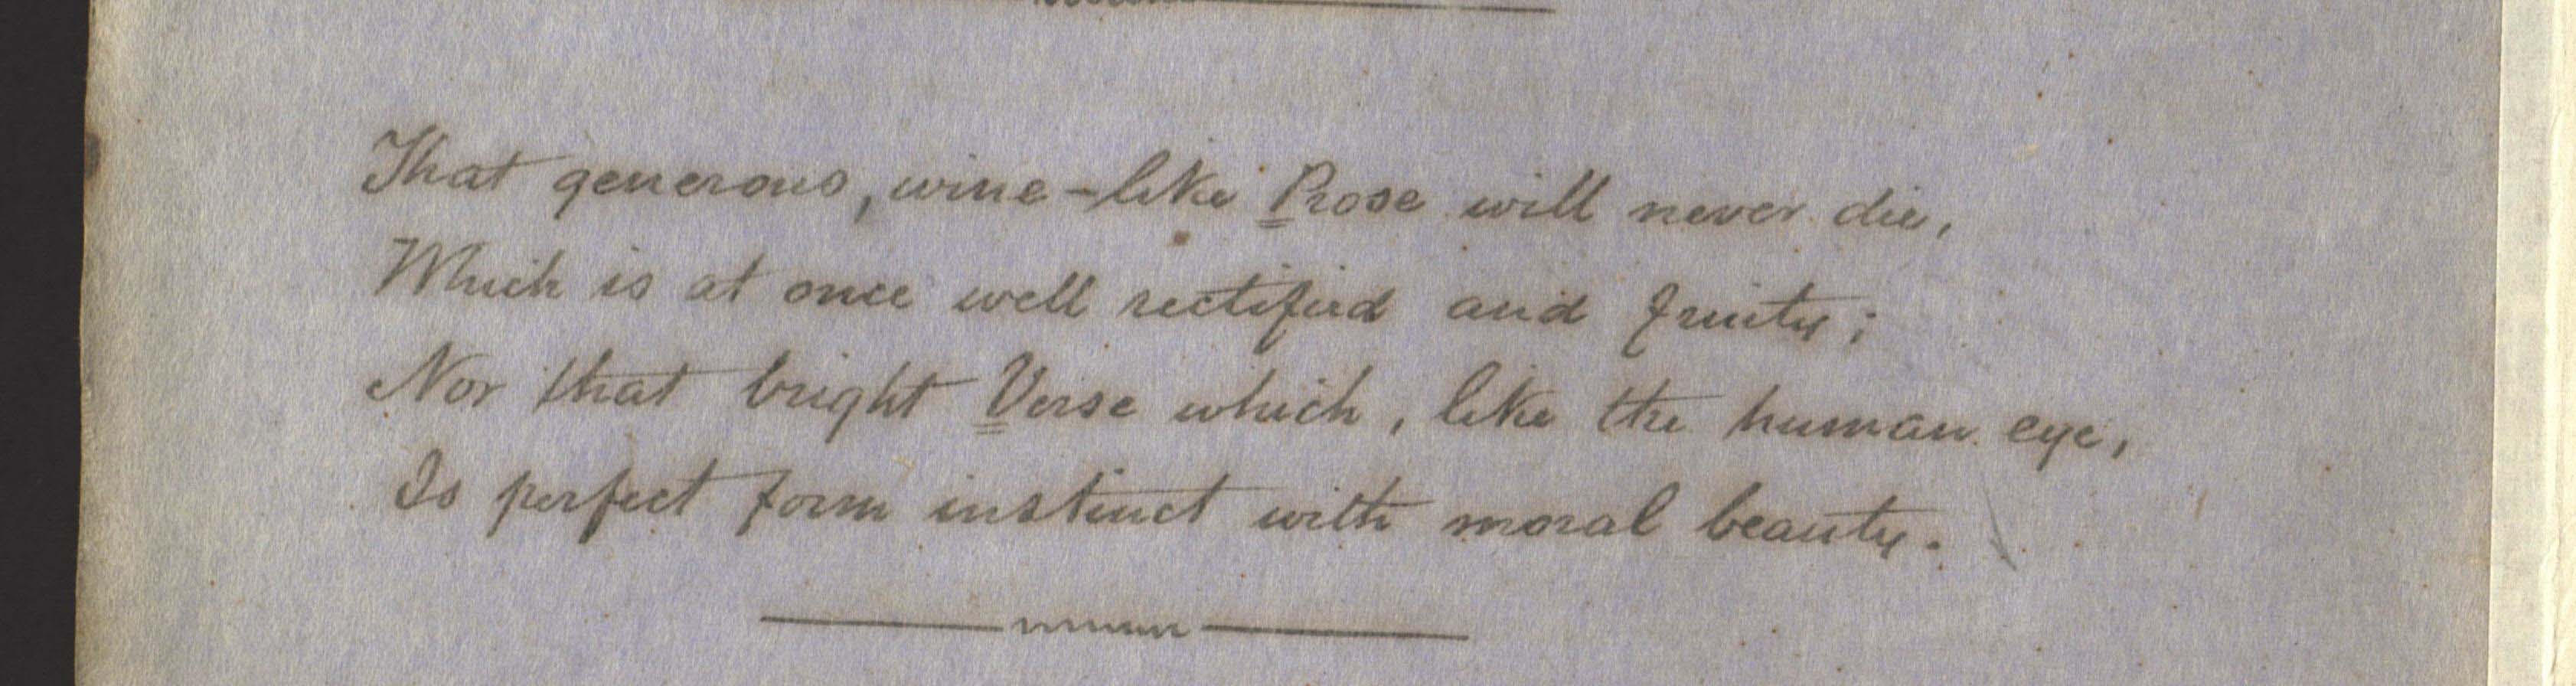 That generous, wine-like Prose will never die,
Which is at once well rectified and fruity;
Nor that bright Verse which, like the human eye,
Is perfect form instinct with moral beauty.